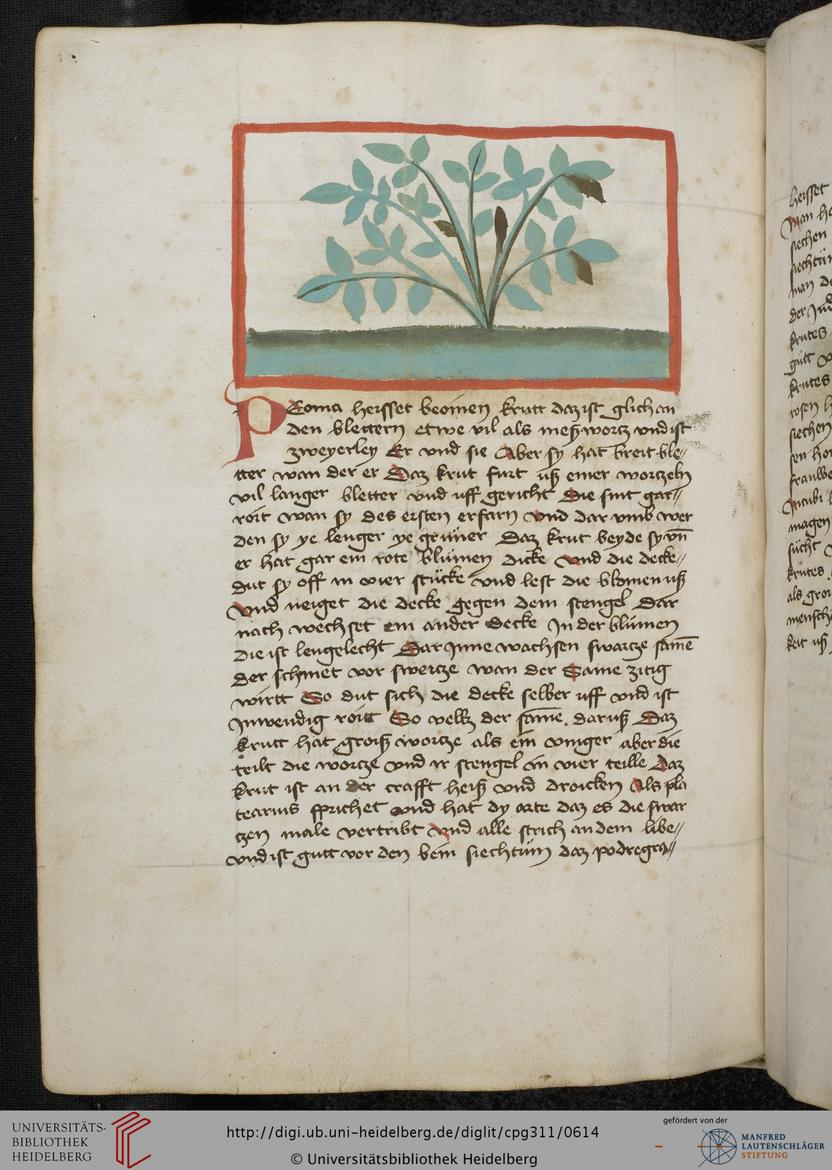 Peoma heisset beoinen krutt daz ist glich an
den blettern etwe vil als meßwortz vnd ist
zweyerley Er vnd sie Aber sy hat breit ble-
tter wan der er Daz krut furt uß einer wortzeln
vil langer bletter vnd uff gericht Die sint gar
roit wan sy des ersten erfarn vnd dar vmb wer
den sy ye lenger ye gruner Daz krut beyde sy vn̄
er hat gar ein rote blümen dicke vnd die decke
dut sy off in vier stücke vnd lest die blomen uß
vnd neiget die decke gegen dem stengel Dar
nach wechset ein ander decke In der blümen
die ist lengelecht Dar Inne wachsen swartze same
der schinet vor swertze wan der Same zitig
wirtt So dut sich die decke selber uff vnd ist
Inwendig roitt So velk der same. daruß Daz
krutt hat groiß wortze als ein vinger aber die
teilt die wortze vnd ir stengel in vier teille Daz
krut ist an der crafft heiß vnd droicken Als pla
tearius sprichet vnd hat dy arte daz es die swar
tzen male vertribt vnd alle strich an dem libe
vnd ist gutt vor den bein siechtům daz podregra
heisset
Man
siechen
siechtum
man d
der
krutes
gutt v
krutes
rosen h
siechen
sen hon
frauwe
Incubi
magen
sücht
krutes.
als gro
mensch
keit uß
UNIVERSITÄTS-
BIBLIOTHEK
HEIDELBERG
http://digi.ub.uni-heidelberg.de/diglit/cpg311/0614
© Universitätsbibliothek Heidelberg
gefördert von der
MANFRED
LAUTENSCHLÄGER
STIFTUNG